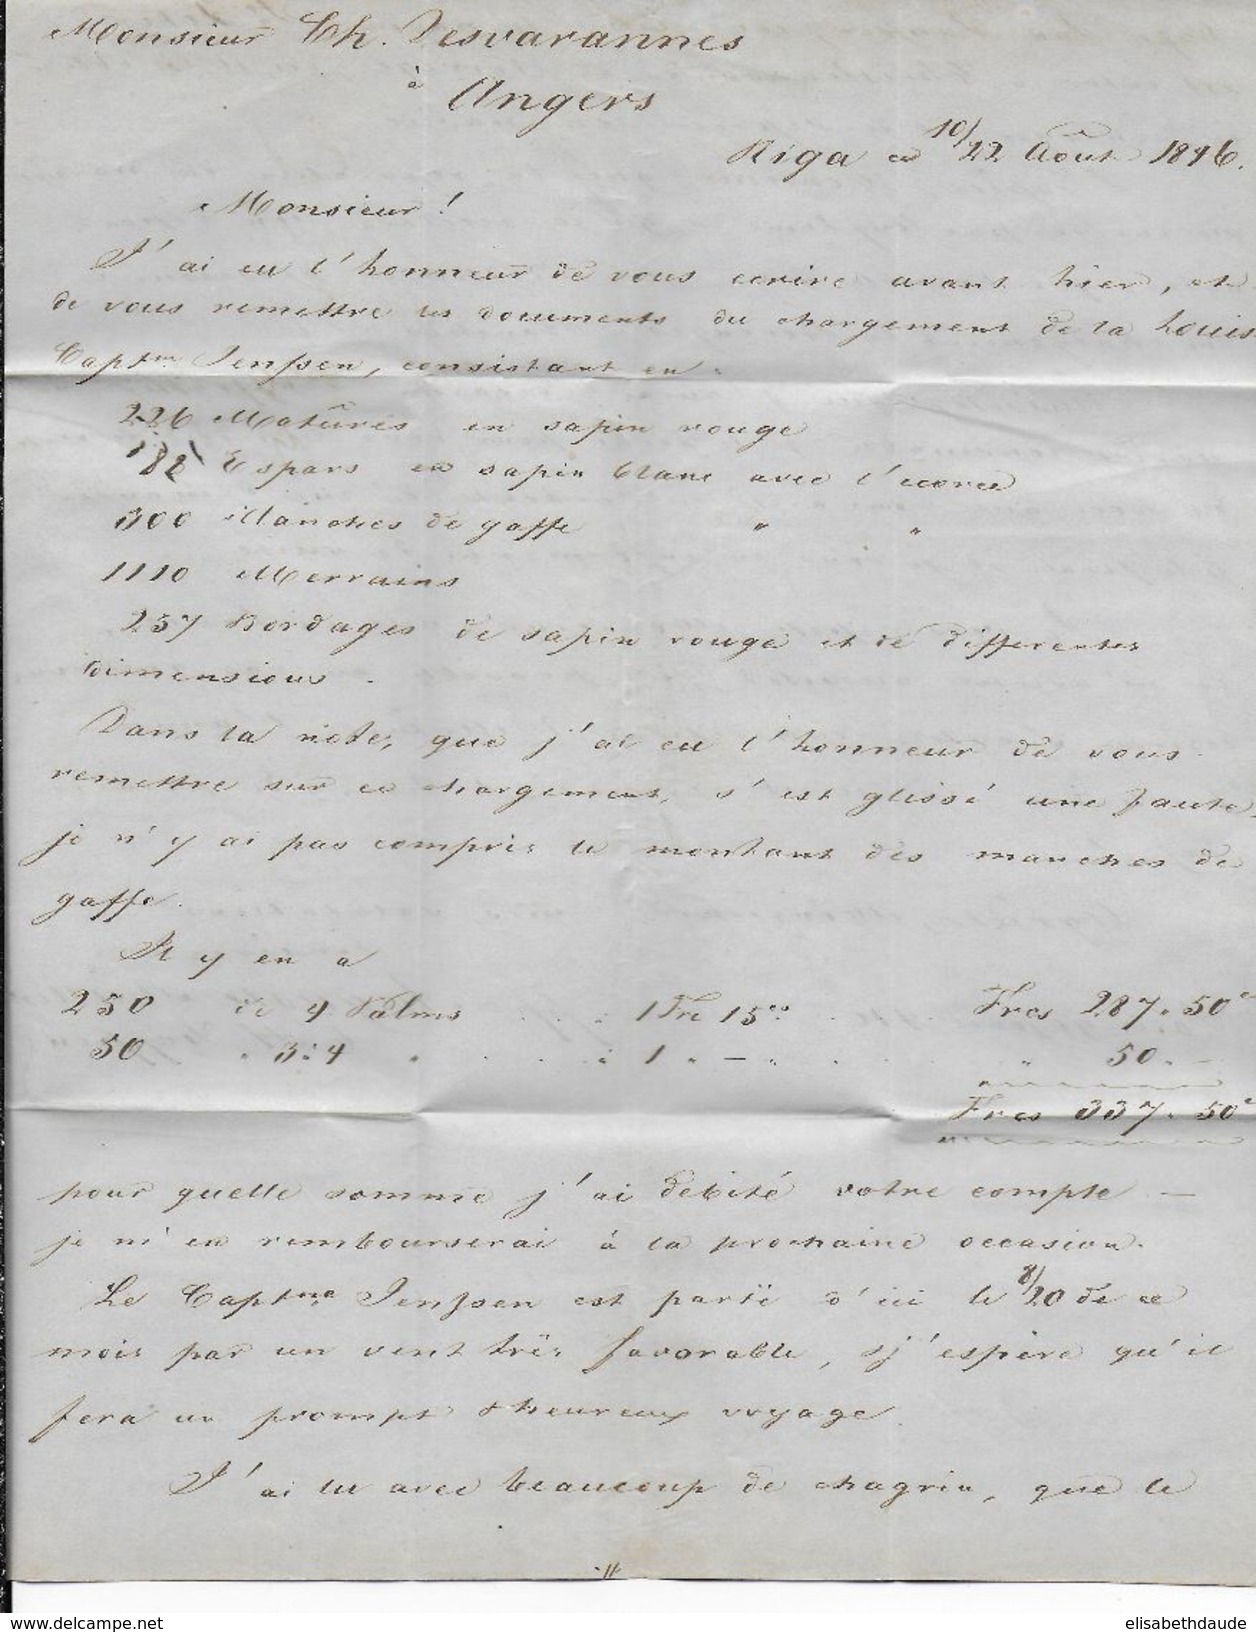 Monsieur Ch. Desvarannes
à
Angers
Riga ce 10/22 Août 1846.
Monsieur!
J'ai eu l'honneur de vous ecrire avant hier, et
de vous remettre les documents du chargement de la Louise
Captm Jenssen, consistant en:
226 Matûres en sapin rouge
188 Espars en sapin blanc avec l'ecorce
300 Manches de gaffe " "
1110 Merrains
257 Bordages de sapin rouge et de differentes
dimensions.
Dans la note, que j'ai eu l'honneur de vous
remettre sur ce chargement, s'est glissé une faute,
je n'y ai pas compris le montant des manches de
gaffe.
Il y en a
250 de 4 Palms . . . à 1 Frc 15cs . . . Frcs 287.50c
50 " 3:4 " . . . à 1 " — " . . . " 50. —
Frcs 337.50c
pour quelle somme j'ai debité votre compte —
je m'en rembourserai à la prochaine occasion.
Le Captne Jenssen est parti d'ici le 8/20 de ce
mois par un vent très favorable, & j'espère qu'il
fera un prompt & heureux voyage.
J'ai lu avec beaucoup de chagrin, que le
elisabethdaude
www.delcampe.net